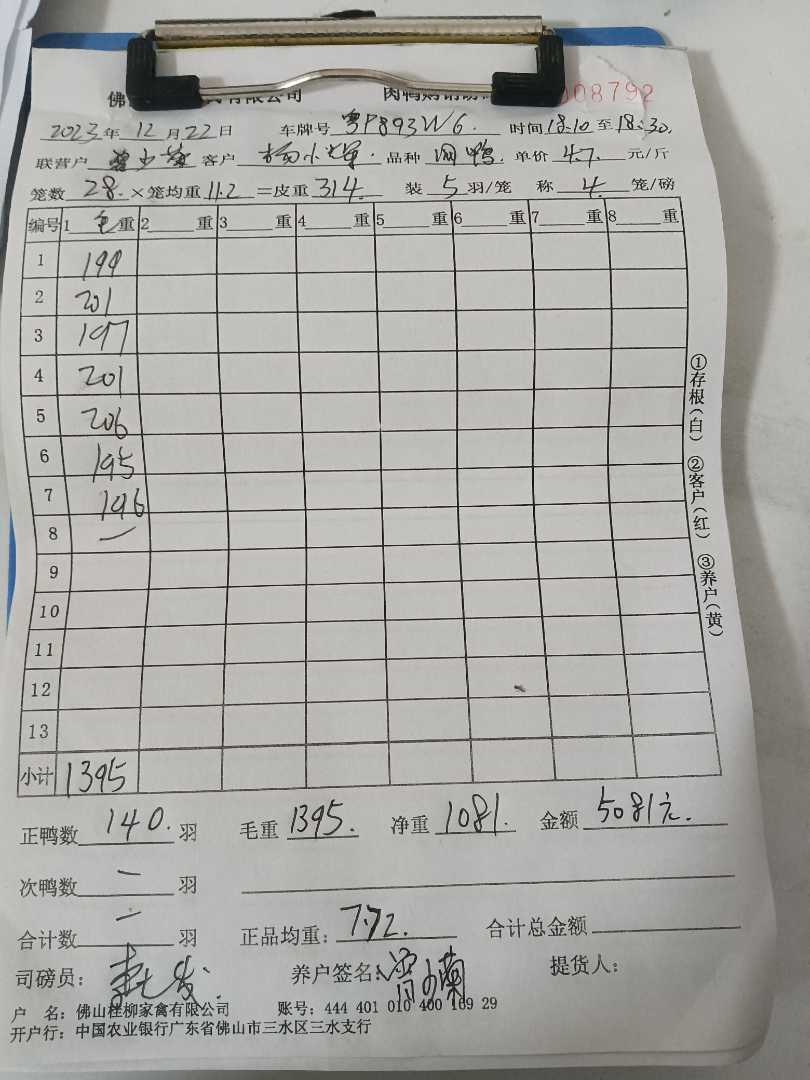 佛 有限公司 肉鸭购销磅 008792
2023年12月22日 车牌号 粤P893W6. 时间18:10至18:30.
联营户 客户 杨小辉. 品种 单价 4.7 元/斤
笼数 28. ×笼均重 11.2 =皮重 314. 装 5 羽/笼 称 4. 笼/磅
编号 1 毛重 2 重 3 重 4 重 5 重 6 重 7 重 8 重
1 199
2 201
3 197
4 201
5 206
6 195
7 196
8 一
9
10
11
12
13
小计 1395
正鸭数 140. 羽 毛重 1395. 净重 1081. 金额 5081元.
次鸭数 一 羽
合计数 一 羽 正品均重: 7.72. 合计总金额
司磅员: 养户签名: 提货人:
户 名: 佛山桂柳家禽有限公司 账号: 444 401 010 400 169 29
开户行: 中国农业银行广东省佛山市三水区三水支行
①存根(白) ②客户(红) ③养户(黄)